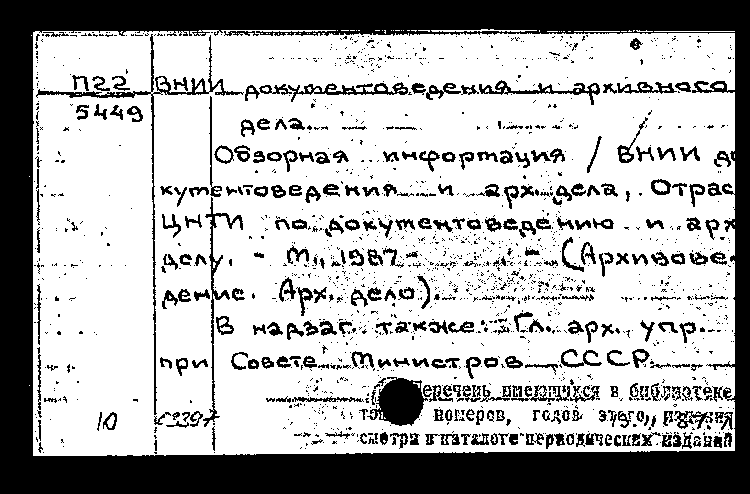 П22 ВНИИ документоведения и архивного
5449 дела.
Обзорная информация / ВНИИ до
кументоведения и арх. дела, Отрас
ЦНТИ по документоведению и арх
делу. - М., 1987- - (Архивове-
дение. Арх. дело).
В надзаг. также: Гл. арх. упр.
при Совете Министров СССР
Перечень имеющихся в библиотеке
номеров, годов этого издания
10 смотри в каталоге периодических изданий